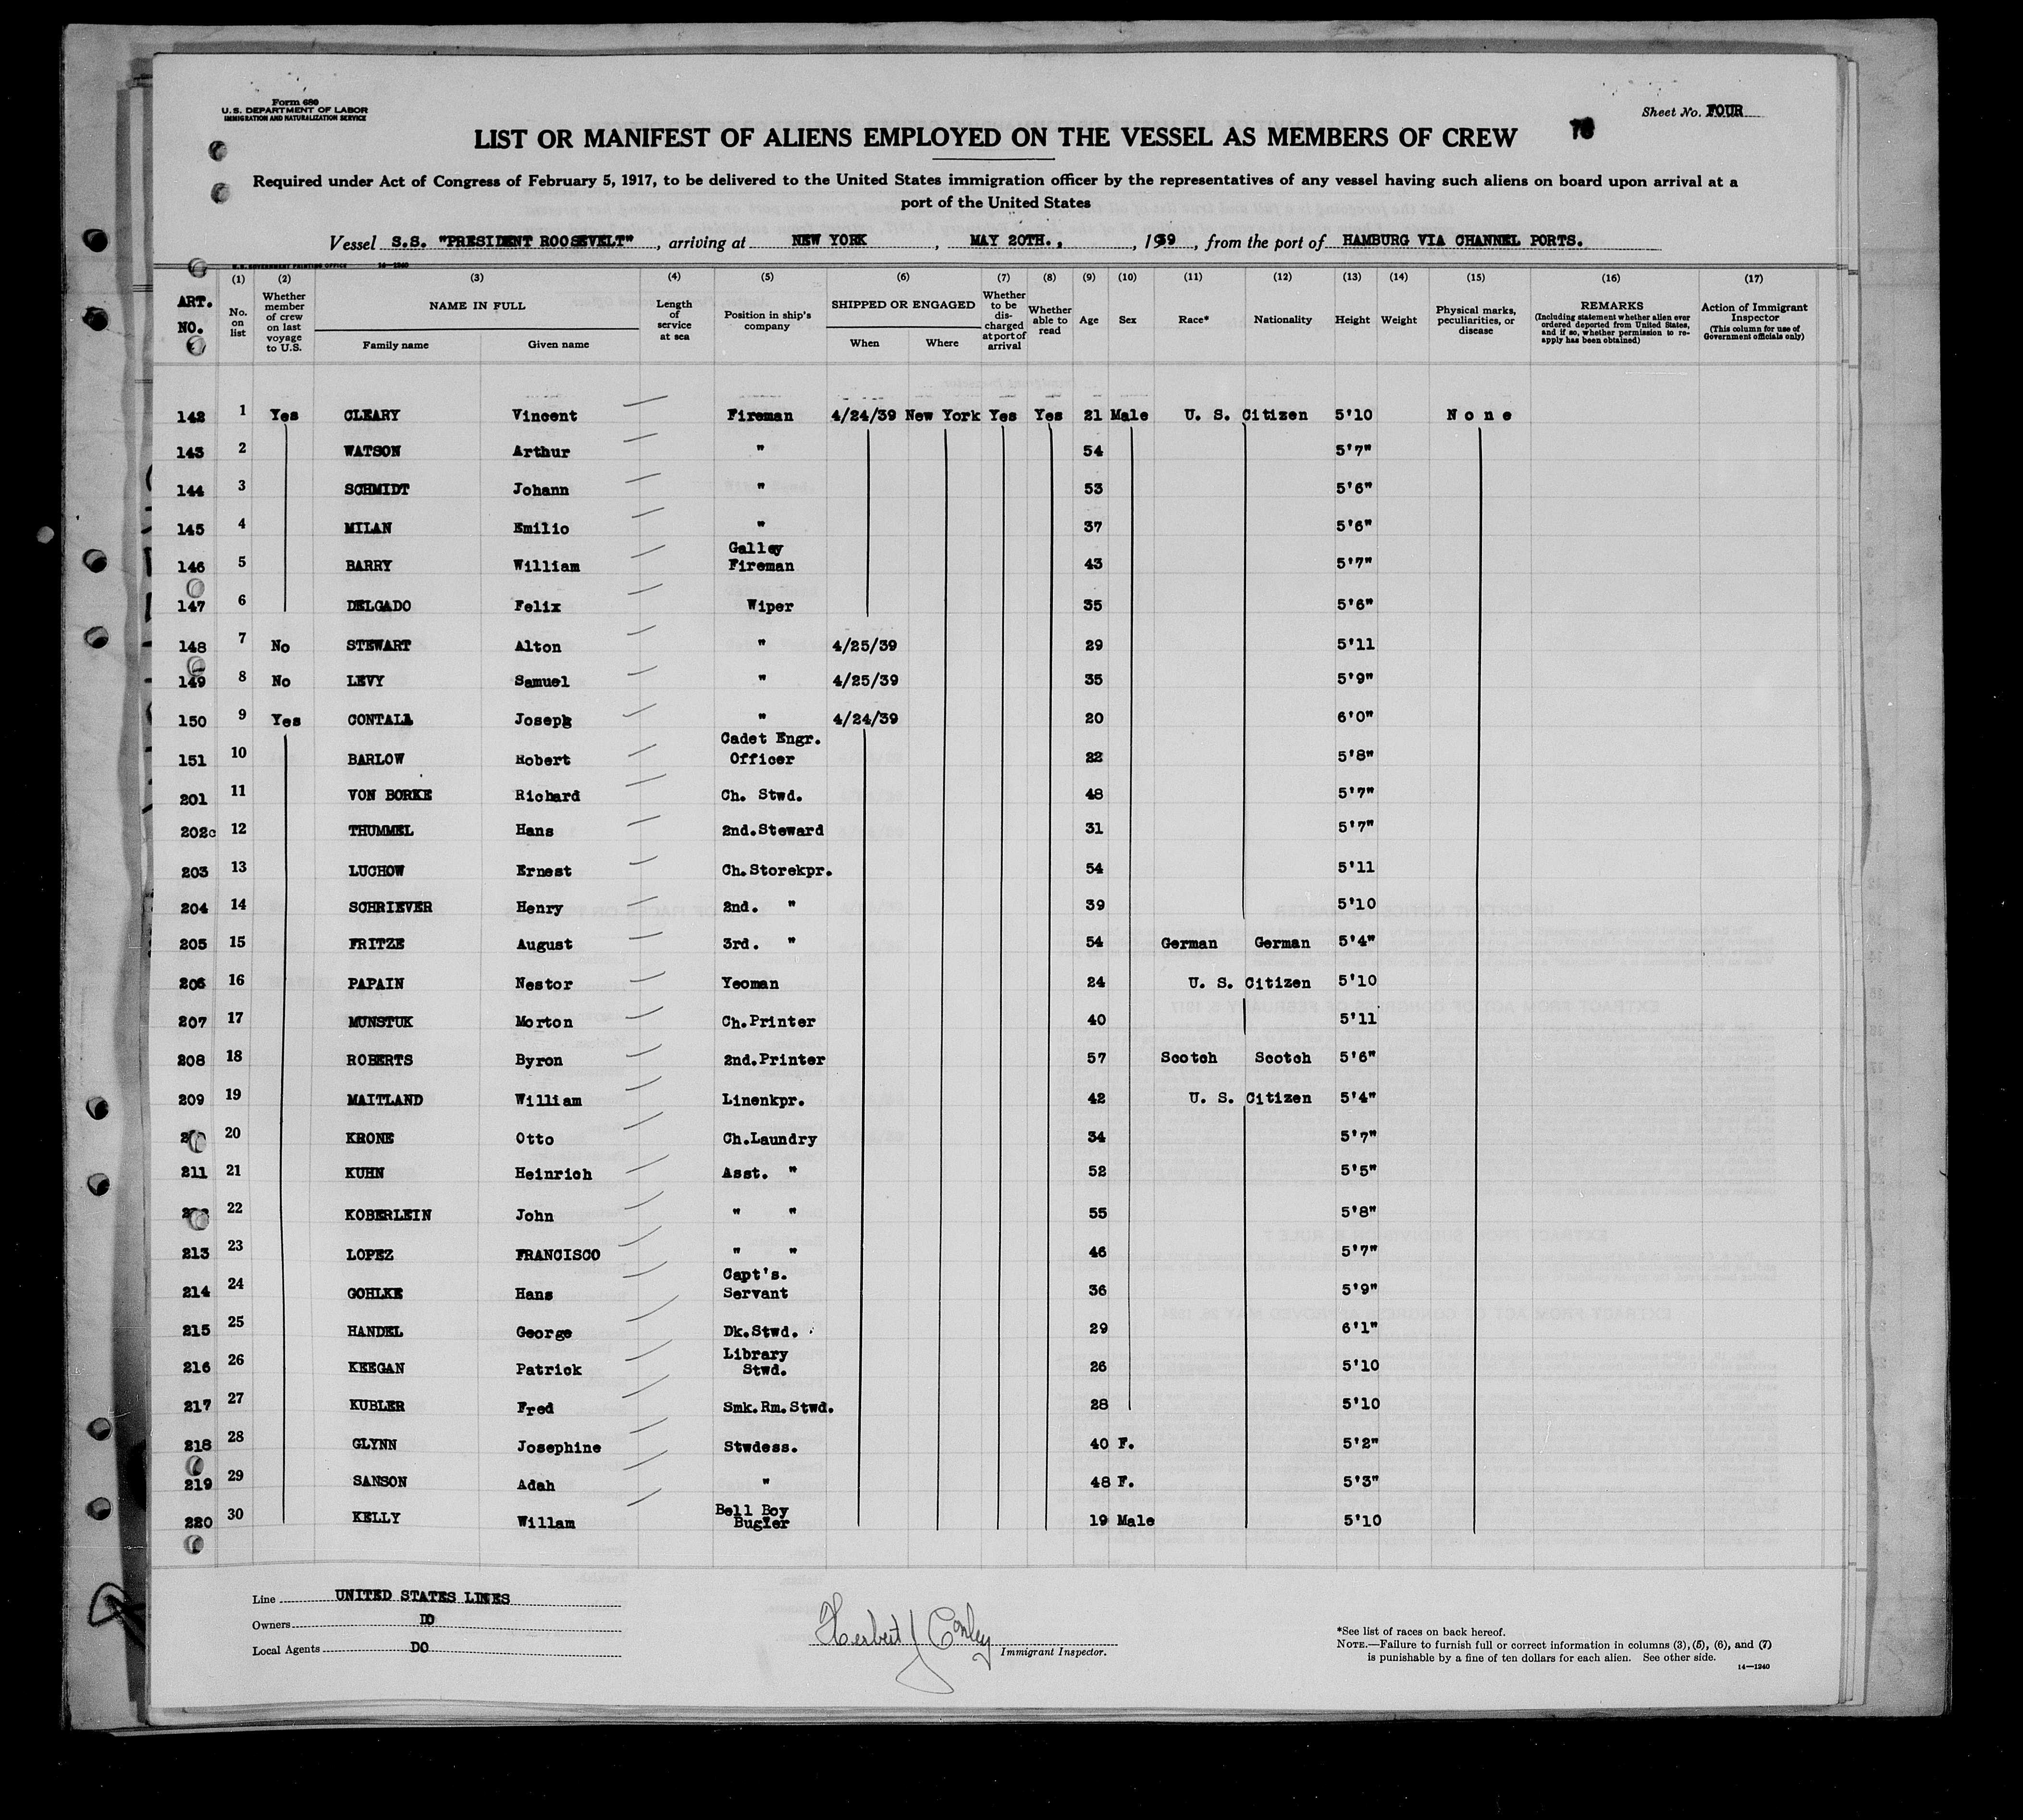 Form 680
U.S. DEPARTMENT OF LABOR
IMMIGRATION AND NATURALIZATION SERVICE
Sheet No. FOUR
LIST OR MANIFEST OF ALIENS EMPLOYED ON THE VESSEL AS MEMBERS OF CREW
Required under Act of Congress of February 5, 1917, to be delivered to the United States immigration officer by the representatives of any vessel having such aliens on board upon arrival at a
port of the United States
Vessel S.S. "PRESIDENT ROOSEVELT", arriving at NEW YORK, MAY 20TH., , 1939, from the port of HAMBURG VIA CHANNEL PORTS.
U.S. GOVERNMENT PRINTING OFFICE 14—1240
(1) (2) (3) (4) (5) (6) (7) (8) (9) (10) (11) (12) (13) (14) (15) (16) (17)
ART. NO.
No. on list
Whether member of crew on last voyage to U.S.
NAME IN FULL
Family name Given name
Length of service at sea
Position in ship's company
SHIPPED OR ENGAGED
When Where
Whether to be discharged at port of arrival
Whether able to read
Age
Sex
Race*
Nationality
Height
Weight
Physical marks, peculiarities, or disease
REMARKS
(Including statement whether alien ever ordered deported from United States, and if so, whether permission to re-apply has been obtained)
Action of Immigrant Inspector
(This column for use of Government officials only)
142 1 Yes CLEARY Vincent Fireman 4/24/39 New York Yes Yes 21 Male U. S. Citizen 5'10 None
143 2 WATSON Arthur " 54 5'7"
144 3 SCHMIDT Johann " 53 5'6"
145 4 MILAN Emilio " 37 5'6"
146 5 BARRY William Galley Fireman 43 5'7"
147 6 DELGADO Felix Wiper 35 5'6"
148 7 No STEWART Alton " 4/25/39 29 5'11
149 8 No LEVY Samuel " 4/25/39 35 5'9"
150 9 Yes CONTALA Josepg " 4/24/39 20 6'0"
151 10 BARLOW Robert Cadet Engr. Officer 22 5'8"
201 11 VON BORKE Richard Ch. Stwd. 48 5'7"
202c 12 THUMMEL Hans 2nd.Steward 31 5'7"
203 13 LUCHOW Ernest Ch.Storekpr. 54 5'11
204 14 SCHRIEVER Henry 2nd. " 39 5'10
205 15 FRITZE August 3rd. " 54 German German 5'4"
206 16 PAPAIN Nestor Yeoman 24 U. S. Citizen 5'10
207 17 MUNSTUK Morton Ch.Printer 40 5'11
208 18 ROBERTS Byron 2nd.Printer 57 Scotch Scotch 5'6"
209 19 MAITLAND William Linenkpr. 42 U. S. Citizen 5'4"
20 KRONE Otto Ch.Laundry 34 5'7"
211 21 KUHN Heinrich Asst. " 52 5'5"
22 KOBERLEIN John " " 55 5'8"
213 23 LOPEZ FRANCISCO " " 46 5'7"
214 24 GOHLKE Hans Capt's. Servant 36 5'9"
215 25 HANDEL George Dk.Stwd. 29 6'1"
216 26 KEEGAN Patrick Library Stwd. 26 5'10
217 27 KUBLER Fred Smk.Rm.Stwd. 28 5'10
218 28 GLYNN Josephine Stwdess. 40 F. 5'2"
219 29 SANSON Adah " 48 F. 5'3"
220 30 KELLY Willam Bell Boy Bugler 19 Male 5'10
Line UNITED STATES LINES
Owners DO
Local Agents DO
Herbert J Conley
Immigrant Inspector.
*See list of races on back hereof.
NOTE.—Failure to furnish full or correct information in columns (3), (5), (6), and (7)
is punishable by a fine of ten dollars for each alien. See other side.
14—1240